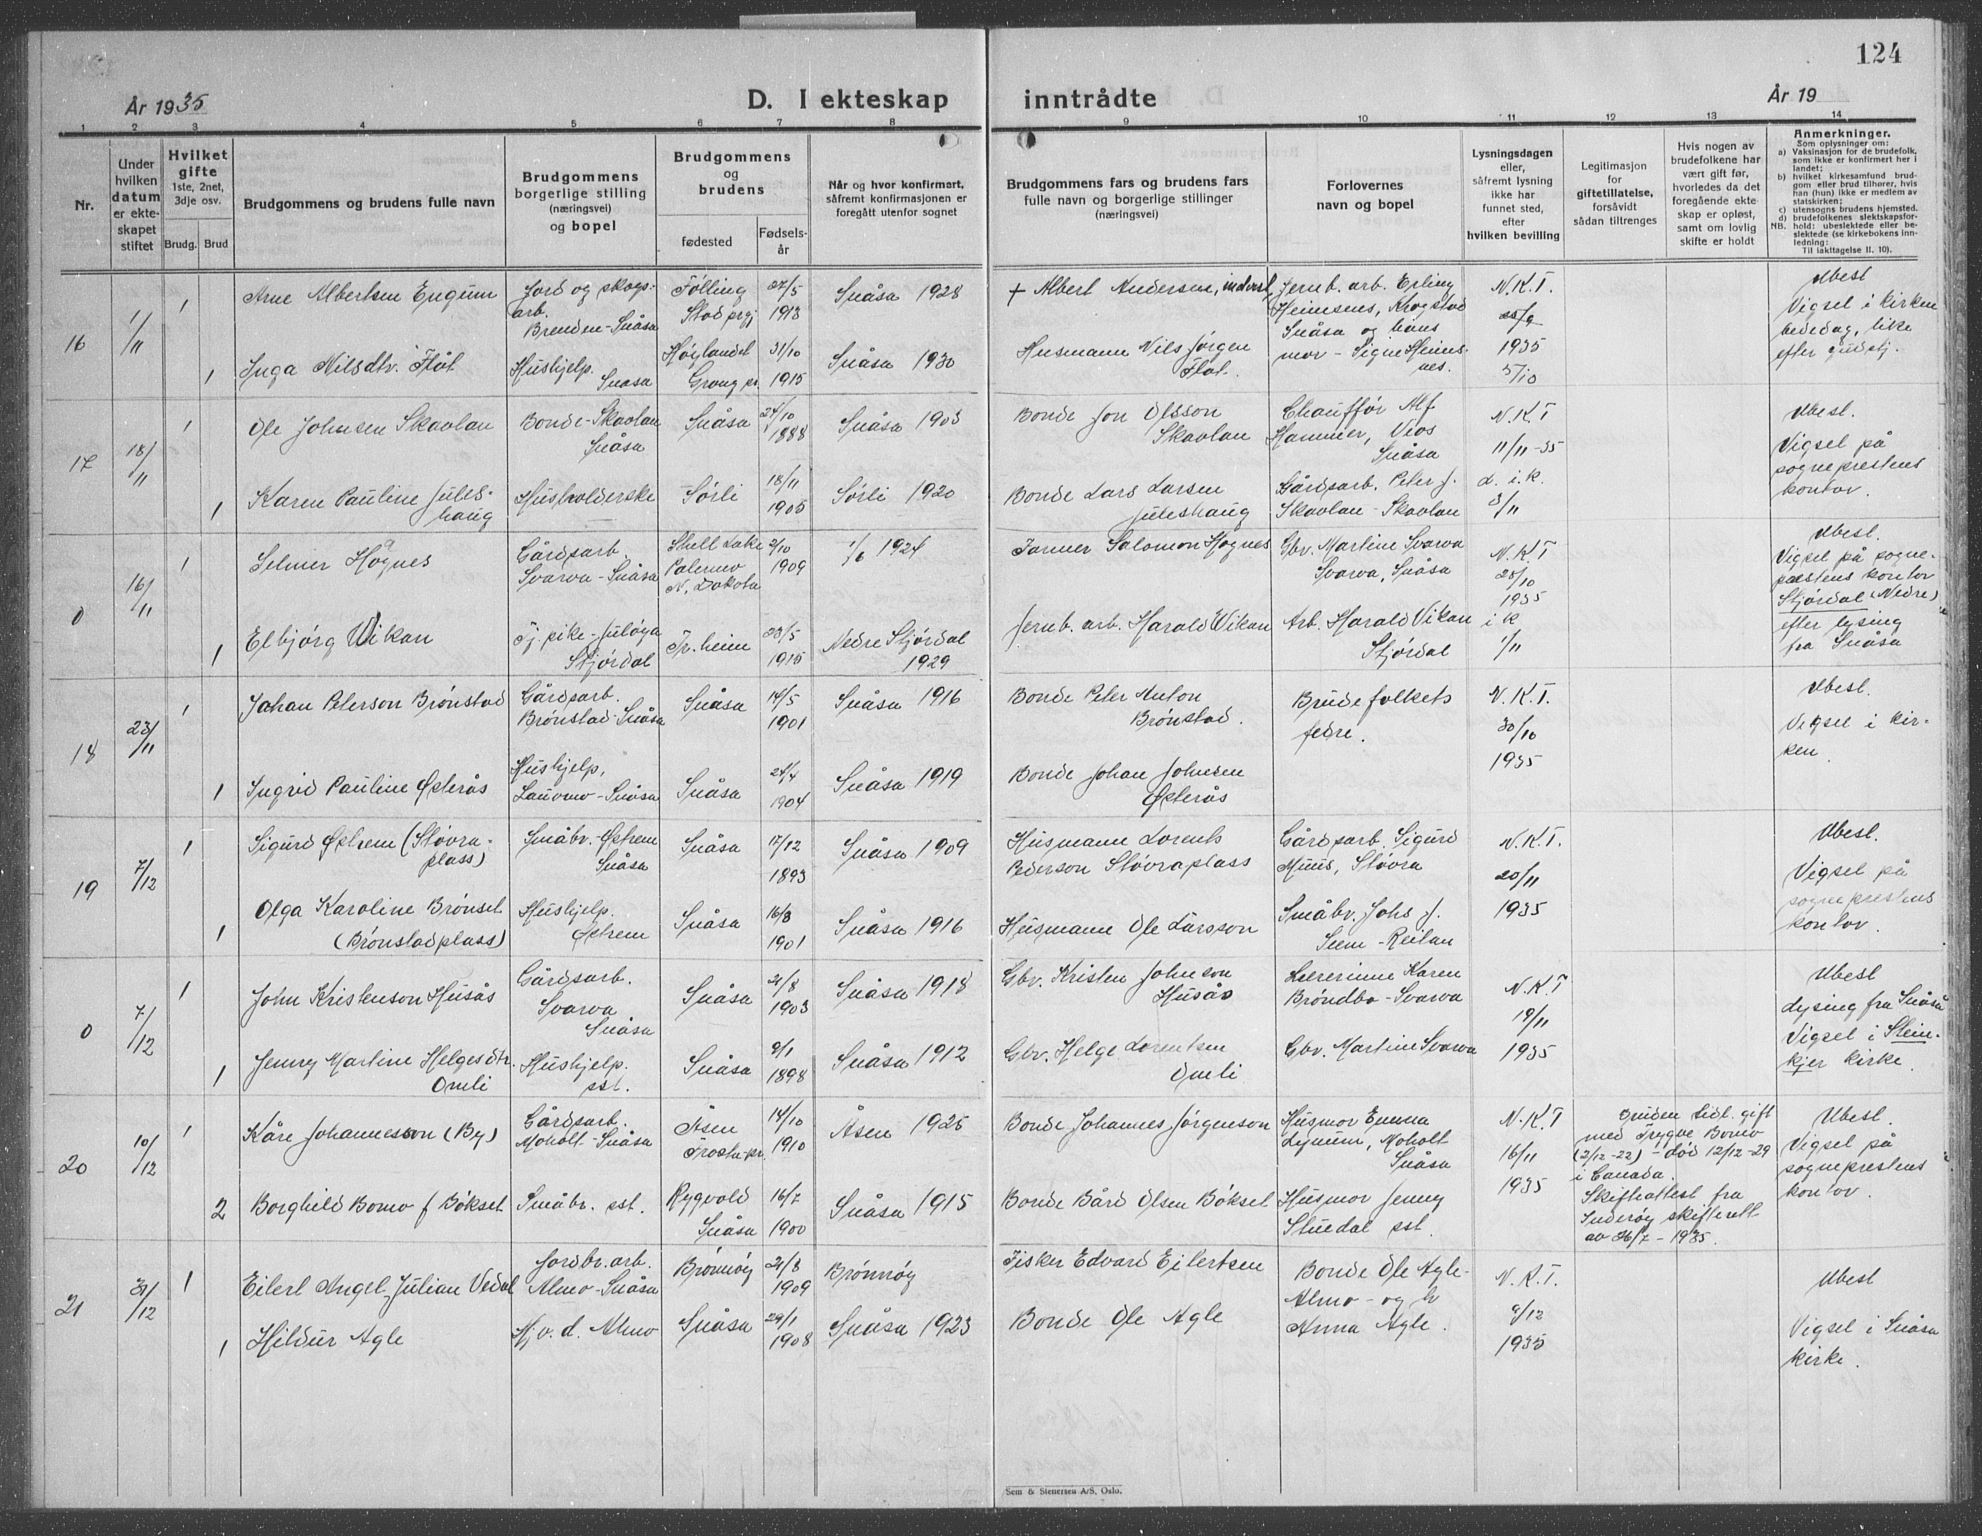 124
År 1935
D. I ekteskap
inntrådte
År 19
1 2 3 4 5 6 7 8 9 10 11 12 13 14
Nr.
Under
hvilken
datum
er ekte-
skapet
stiftet
Hvilket
gifte
1ste, 2net,
3dje osv.
Brudg. Brud
Brudgommens og brudens fulle navn
Brudgommens
borgerlige stilling
(næringsvei)
og bopel
Brudgommens
og
brudens
fødested
Fødsels-
år
Når og hvor konfirmert,
såfremt konfirmasjonen er
foregått utenfor sognet
Brudgommens fars og brudens fars
fulle navn og borgerlige stillinger
(næringsvei)
Forlovernes
navn og bopel
Lysningsdagen
eller,
såfremt lysning
ikke har
funnet sted,
efter
hvilken bevilling
Legitimasjon
for
giftetillatelse,
forsåvidt
sådan tiltrenges
Hvis nogen av
brudefolkene har
vært gift før,
hvorledes da det
foregående ekte-
skap er opløst,
samt om lovlig
skifte er holdt
Anmerkninger.
Som oplysninger om:
a) Vaksinasjon for de brudefolk,
som ikke er konfirmert her i
landet;
b) hvilket kirkesamfund brud-
gom eller brud tilhører, hvis
han (hun) ikke er medlem av
statskirken;
c) utensogns brudens hjemsted.
d) brudefolkenes slektskapsfor-
NB. hold: ubeslektede eller be-
slektede (se kirkebokens inn-
ledning:
Til iakttagelse II. 10).
16
1/11
1
Arne Albertsen Engum
Jord og skogs-
arb.
Brenden-Snåsa
Følling
Stod prgj
27/5
1913
Snåsa 1928
+ Albert Andersen,
Jernb. arb. Erling
Heimsnes, Krogstad
Snåsa og hans
mor - Signe Heims-
nes.
N.K.T.
25/9
1935
5/10
Ubesl
Vigsel i kirken
bededag, like
efter gudstj.
1
Inga Nilsdtr. Flåt
Hushjelp.
Snåsa
Høylandet
Grong pr.
31/10
1915
Snåsa 1930
Husmann Nils Jørgen
Flåt.
17
18/11
1
Ole Johnsen Skavlan
Bonde-Skavlan
Snåsa
Snåsa
24/10
1888
Snåsa 1903
Bonde Jon Olsson
Skavlan
Chauffør Alf
Hammer, Vios
Snåsa
N.K.T
11/11-35
Ubesl.
Vigsel på
sogneprestens
kontor.
1
Karen Pauline Jules-
haug
Husholderske
Sørli
18/11
1905
Sørli 1920
Bonde Lars Larsen
Juleshaug
Gårdsarb. Peter J.
Skavlan-Skavlan
d. i.k.
3/11
0
16/11
1
Selmer Høgnes
Gårdsarb.
Svarva-Snåsa
Shell Lake
Palermo
N. Dakota
2/10
1909
1/6 1924
Farmer Salomon Høgnes
Gbr. Martine Svarva
Svarva, Snåsa
N.K.T
28/10
1935
Ubesl.
Vigsel på sogne-
prestens kontor
Stjørdal (Nedre)
efter lysing
fra Snåsa
1
Elbjørg Wikan
Tj. pike-Juløya
Stjørdal
Tr. heim
23/5
1915
Nedre Stjørdal
1929
Jernb. arb. Harald Wikan
Arb. Harald Vikan
Stjørdal
i k
1/11
18
23/11
1
Johan Peterson Brønstad
Gårdsarb.
Brønstad-Snåsa
Snåsa
14/5
1901
Snåsa 1916
Bonde Peter Anton
Brønstad.
Brudefolkets
fedre.
N.K.T.
30/10
1935
Ubesl.
Vigsel i kir-
ken.
1
Ingrid Pauline Østerås
Hushjelp,
Lauvmo-Snåsa
Snåsa
24/4
1904
Snåsa 1919
Bonde Johan Johnsen
Østerås
19
7/12
1
Sigurd Østrem (Støvra-
plass)
Småbr.-Østrem
Snåsa
Snåsa
17/12
1893
Snåsa 1909
Husmann Lorents
Pederson Støvraplass
Gårdsarb. Sigurd
Muus, Støvra
N.K.T.
20/11
1935
Ubesl.
Vigsel på
sogneprestens
kontor.
1
Olga Karoline Brønset
(Brønstadplass)
Hushjelp.
Østrem
Snåsa
16/3
1901
Snåsa 1916
Husmann Ole Larsson
Småbr. Johs J.
Seem-Reitan
0
7/12
1
John Kristenson Husås
Gårdsarb.
Svarva
Snåsa
Snåsa
21/8
1903
Snåsa 1918
Gbr. Kristen Johnson
Husås
Lærerinne Karen
Brøndbo-Svarva
N.K.T
19/11
1935
Ubesl
Lysing fra Snåsa
Vigsel i Stein-
kjer kirke.
1
Jenny Martine Helgesdtr.
Omli
Hushjelp.
sst.
Snåsa
9/1
1898
Snåsa 1912
Gbr. Helge Lorentsen
Omli
Gbr. Martine Svarva
20
10/12
1
Kåre Johannesson (By)
Gårdsarb.
Moholt-Snåsa
Åsen
Frosta-pr.
14/10
1910
Åsen 1925
Bonde Johannes Jørgenson
Husmor Emma
Lynum, Moholt
Snåsa
N.K.T
16/11
1935
Bruden tidl. gift
med Trygve Bomo
(2/12-22) - død 12/12-29
i Canada.
Skifteattest fra
Inderøy skifterett
av 26/7-1935.
Ubesl.
Vigsel på
sogneprestens
kontor.
2
Borghild Bomo f Bøkset
Småbr. sst.
Rygvold
Snåsa
16/7
1900
Snåsa 1915
Bonde Bård Olsen Bøkset
Husmor Jenny
Stuedal sst.
21
31/12
1
Eilert Angel-Julian Vedal
Jordbr. arb.
Almo-Snåsa
Brønnøy
21/8
1909
Brønnøy
Fisker Edvard Eilertsen
Bonde Ole Agle-
Almo-og h
Anna Agle.
N.K.T.
9/12
1935
Ubesl
Vigsel i Snåsa
kirke.
1
Hildur Agle
Hj. v. d. Almo
Snåsa
29/1
1908
Snåsa 1923
Bonde Ole Agle
Sem & Stenersen A/S, Oslo.